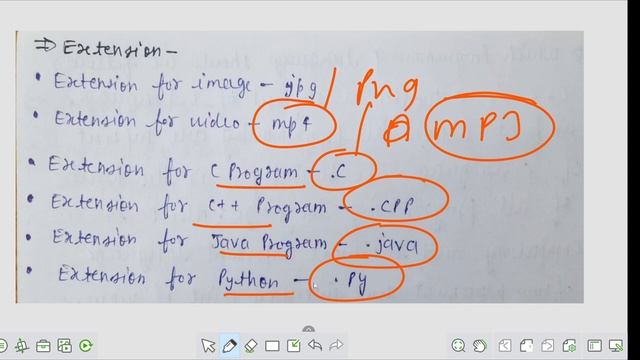 ⇒ Extension -
• Extension for image - jpg / png
• Extension for video - mp4 / mp3
• Extension for C Program - .C
• Extension for C++ Program - .CPP
• Extension for Java Program - .java
• Extension for Python - .Py